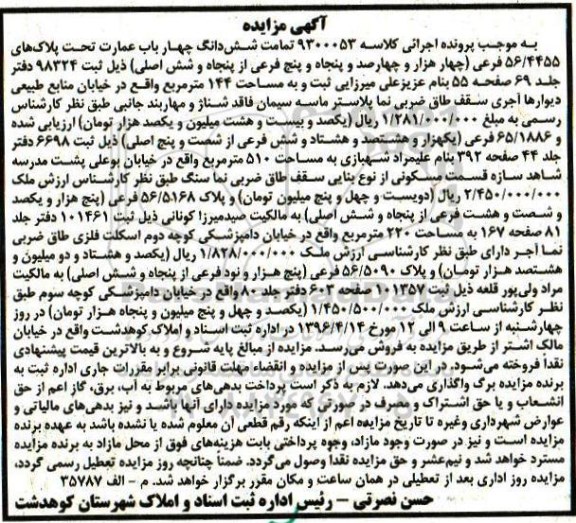 آگهی مزایده
به موجب پرونده اجرائی کلاسه ۹۳۰۰۰۵۳ تمامت شش‌دانگ چهار باب عمارت تحت پلاک‌های
۵۶/۴۴۵۵ فرعی (چهار هزار و چهارصد و پنجاه و پنج فرعی از پنجاه و شش اصلی) ذیل ثبت ۹۸۳۲۴ دفتر
جلد ۶۹ صفحه ۵۵ بنام عزیزعلی میرزایی ثبت و به مساحت ۱۴۴ مترمربع واقع در خیابان منابع طبیعی
دیوارها آجری سقف طاق ضربی نما پلاستر ماسه سیمان فاقد شناژ و مهاربند جانبی طبق نظر کارشناس
رسمی به مبلغ ۱/۲۸۱/۰۰۰/۰۰۰ ریال (یکصد و بیست و هشت میلیون و یکصد هزار تومان) ارزیابی شده
و ۶۵/۱۸۸۶ فرعی (یکهزار و هشتصد و هشتاد و شش فرعی از شصت و پنج اصلی) ذیل ثبت ۶۶۹۸ دفتر
جلد ۴۴ صفحه ۳۹۲ بنام علیمراد شهبازی به مساحت ۵۱۰ مترمربع واقع در خیابان بوعلی پشت مدرسه
شاهد سازه قسمت مسکونی از نوع بنایی سقف طاق ضربی نما سنگ طبق نظر کارشناس ارزش ملک
۲/۴۵۰/۰۰۰/۰۰۰ ریال (دویست و چهل و پنج میلیون تومان) و پلاک ۵۶/۵۱۶۸ فرعی (پنج هزار و یکصد
و شصت و هشت فرعی از پنجاه و شش اصلی) به مالکیت صیدمیرزا کونانی ذیل ثبت ۱۰۱۴۶۱ دفتر جلد
۸۱ صفحه ۱۶۷ به مساحت ۲۲۰ مترمربع واقع در خیابان دامپزشکی کوچه دوم اسکلت فلزی طاق ضربی
نما آجر دارای طبق نظر کارشناسی ارزش ملک ۱/۸۲۸/۰۰۰/۰۰۰ ریال (یکصد و هشتاد و دو میلیون و
هشتصد هزار تومان) و پلاک ۵۶/۵۰۹۰ فرعی (پنج هزار و نود فرعی از پنجاه و شش اصلی) به مالکیت
مراد ولی‌پور قلعه ذیل ثبت ۱۰۱۳۵۷ صفحه ۶۰۳ دفتر جلد ۸۰ واقع در خیابان دامپزشکی کوچه سوم طبق
نظر کارشناسی ارزش ملک ۱/۴۵۰/۵۰۰/۰۰۰ (یکصد و چهل و پنج میلیون و پنجاه هزار تومان) در روز
چهارشنبه از ساعت ۹ الی ۱۲ مورخ ۱۳۹۶/۴/۱۴ در اداره ثبت اسناد و املاک کوهدشت واقع در خیابان
مالک اشتر از طریق مزایده به فروش می‌رسد. مزایده از مبالغ پایه شروع و به بالاترین قیمت پیشنهادی
نقداً فروخته می‌شود. در این صورت پس از مزایده و انقضاء مهلت قانونی برابر مقررات جاری اداره ثبت به
برنده مزایده برگ واگذاری می‌دهد. لازم به ذکر است پرداخت بدهی‌های مربوط به آب، برق، گاز اعم از حق
انشعاب و یا حق اشتراک و مصرف در صورتی که مورد مزایده دارای آنها باشد و نیز بدهی‌های مالیاتی و
عوارض شهرداری وغیره تا تاریخ مزایده اعم از اینکه رقم قطعی آن معلوم شده یا نشده باشد به عهده برنده
مزایده است و نیز در صورت وجود مازاد، وجوه پرداختی بابت هزینه‌های فوق از محل مازاد به برنده مزایده
مسترد خواهد شد و نیم‌عشر و حق مزایده نقداً وصول می‌گردد. ضمناً چنانچه روز مزایده تعطیل رسمی گردد،
مزایده روز اداری بعد از تعطیلی در همان ساعت و مکان مقرر برگزار خواهد شد. م - الف ۳۵۷۸۷
حسن نصرتی – رئیس اداره ثبت اسناد و املاک شهرستان کوهدشت